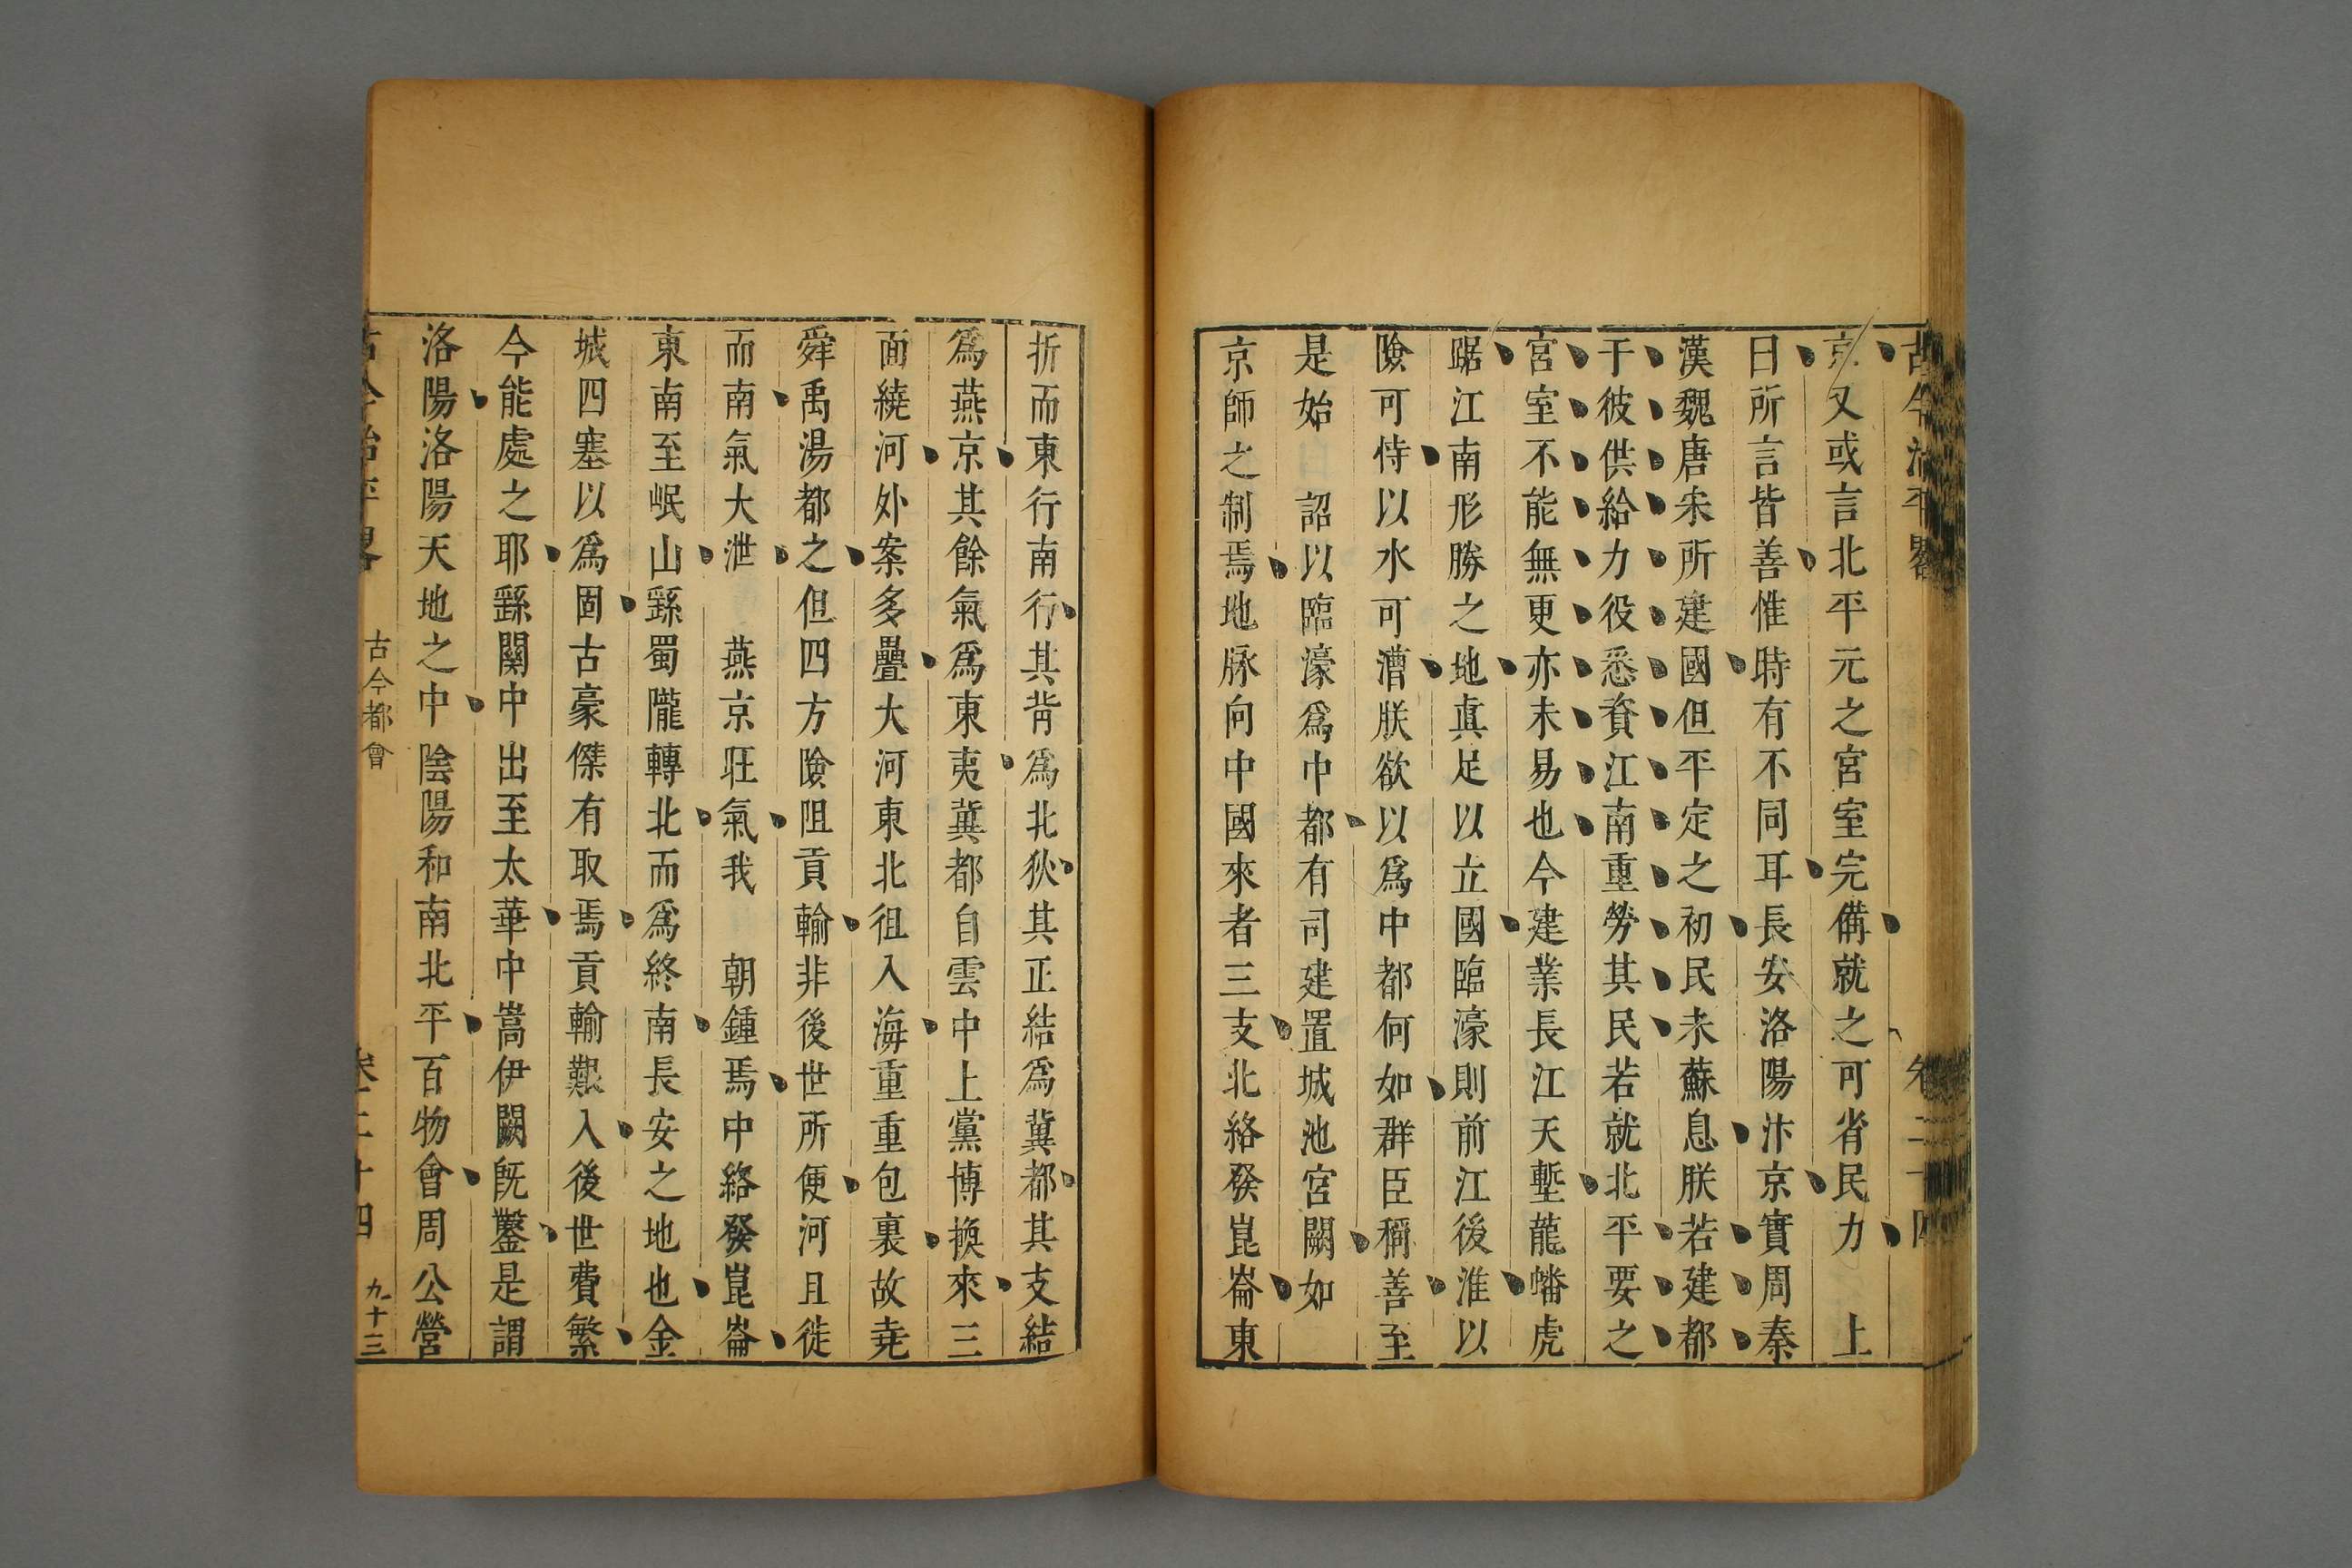 古今治平畧 卷二十四
京又或言北平元之宮室完備就之可省民力 上
曰所言皆善惟時有不同耳長安洛陽汴京實周秦
漢魏唐宋所建國但平定之初民未蘇息朕若建都
于彼供給力役悉資江南重勞其民若就北平要之
宮室不能無更亦未易也今建業長江天塹龍蟠虎
踞江南形勝之地真足以立國臨濠則前江後淮以
險可恃以水可漕朕欲以爲中都何如群臣稱善至
是始 詔以臨濠爲中都有司建置城池宮闕如
京師之制焉地脉向中國來者三支北絡發崑崙東
折而東行南行其背爲北狄其正結爲冀都其支結
爲燕京其餘氣爲東夷冀都自雲中上黨博換來三
面繞河外案多疊大河東北徂入海重重包裹故堯
舜禹湯都之但四方險阻貢輸非後世所便河且徙
而南氣大泄 燕京旺氣我 朝鍾焉中絡發崑崙
東南至岷山繇蜀隴轉北而爲終南長安之地也金
城四塞以爲固古豪傑有取焉貢輸艱入後世費繁
今能處之耶繇關中出至太華中嵩伊闕旣鑿是謂
洛陽洛陽天地之中陰陽和南北平百物會周公營
古今治平畧 古今都會 卷二十四 九十三